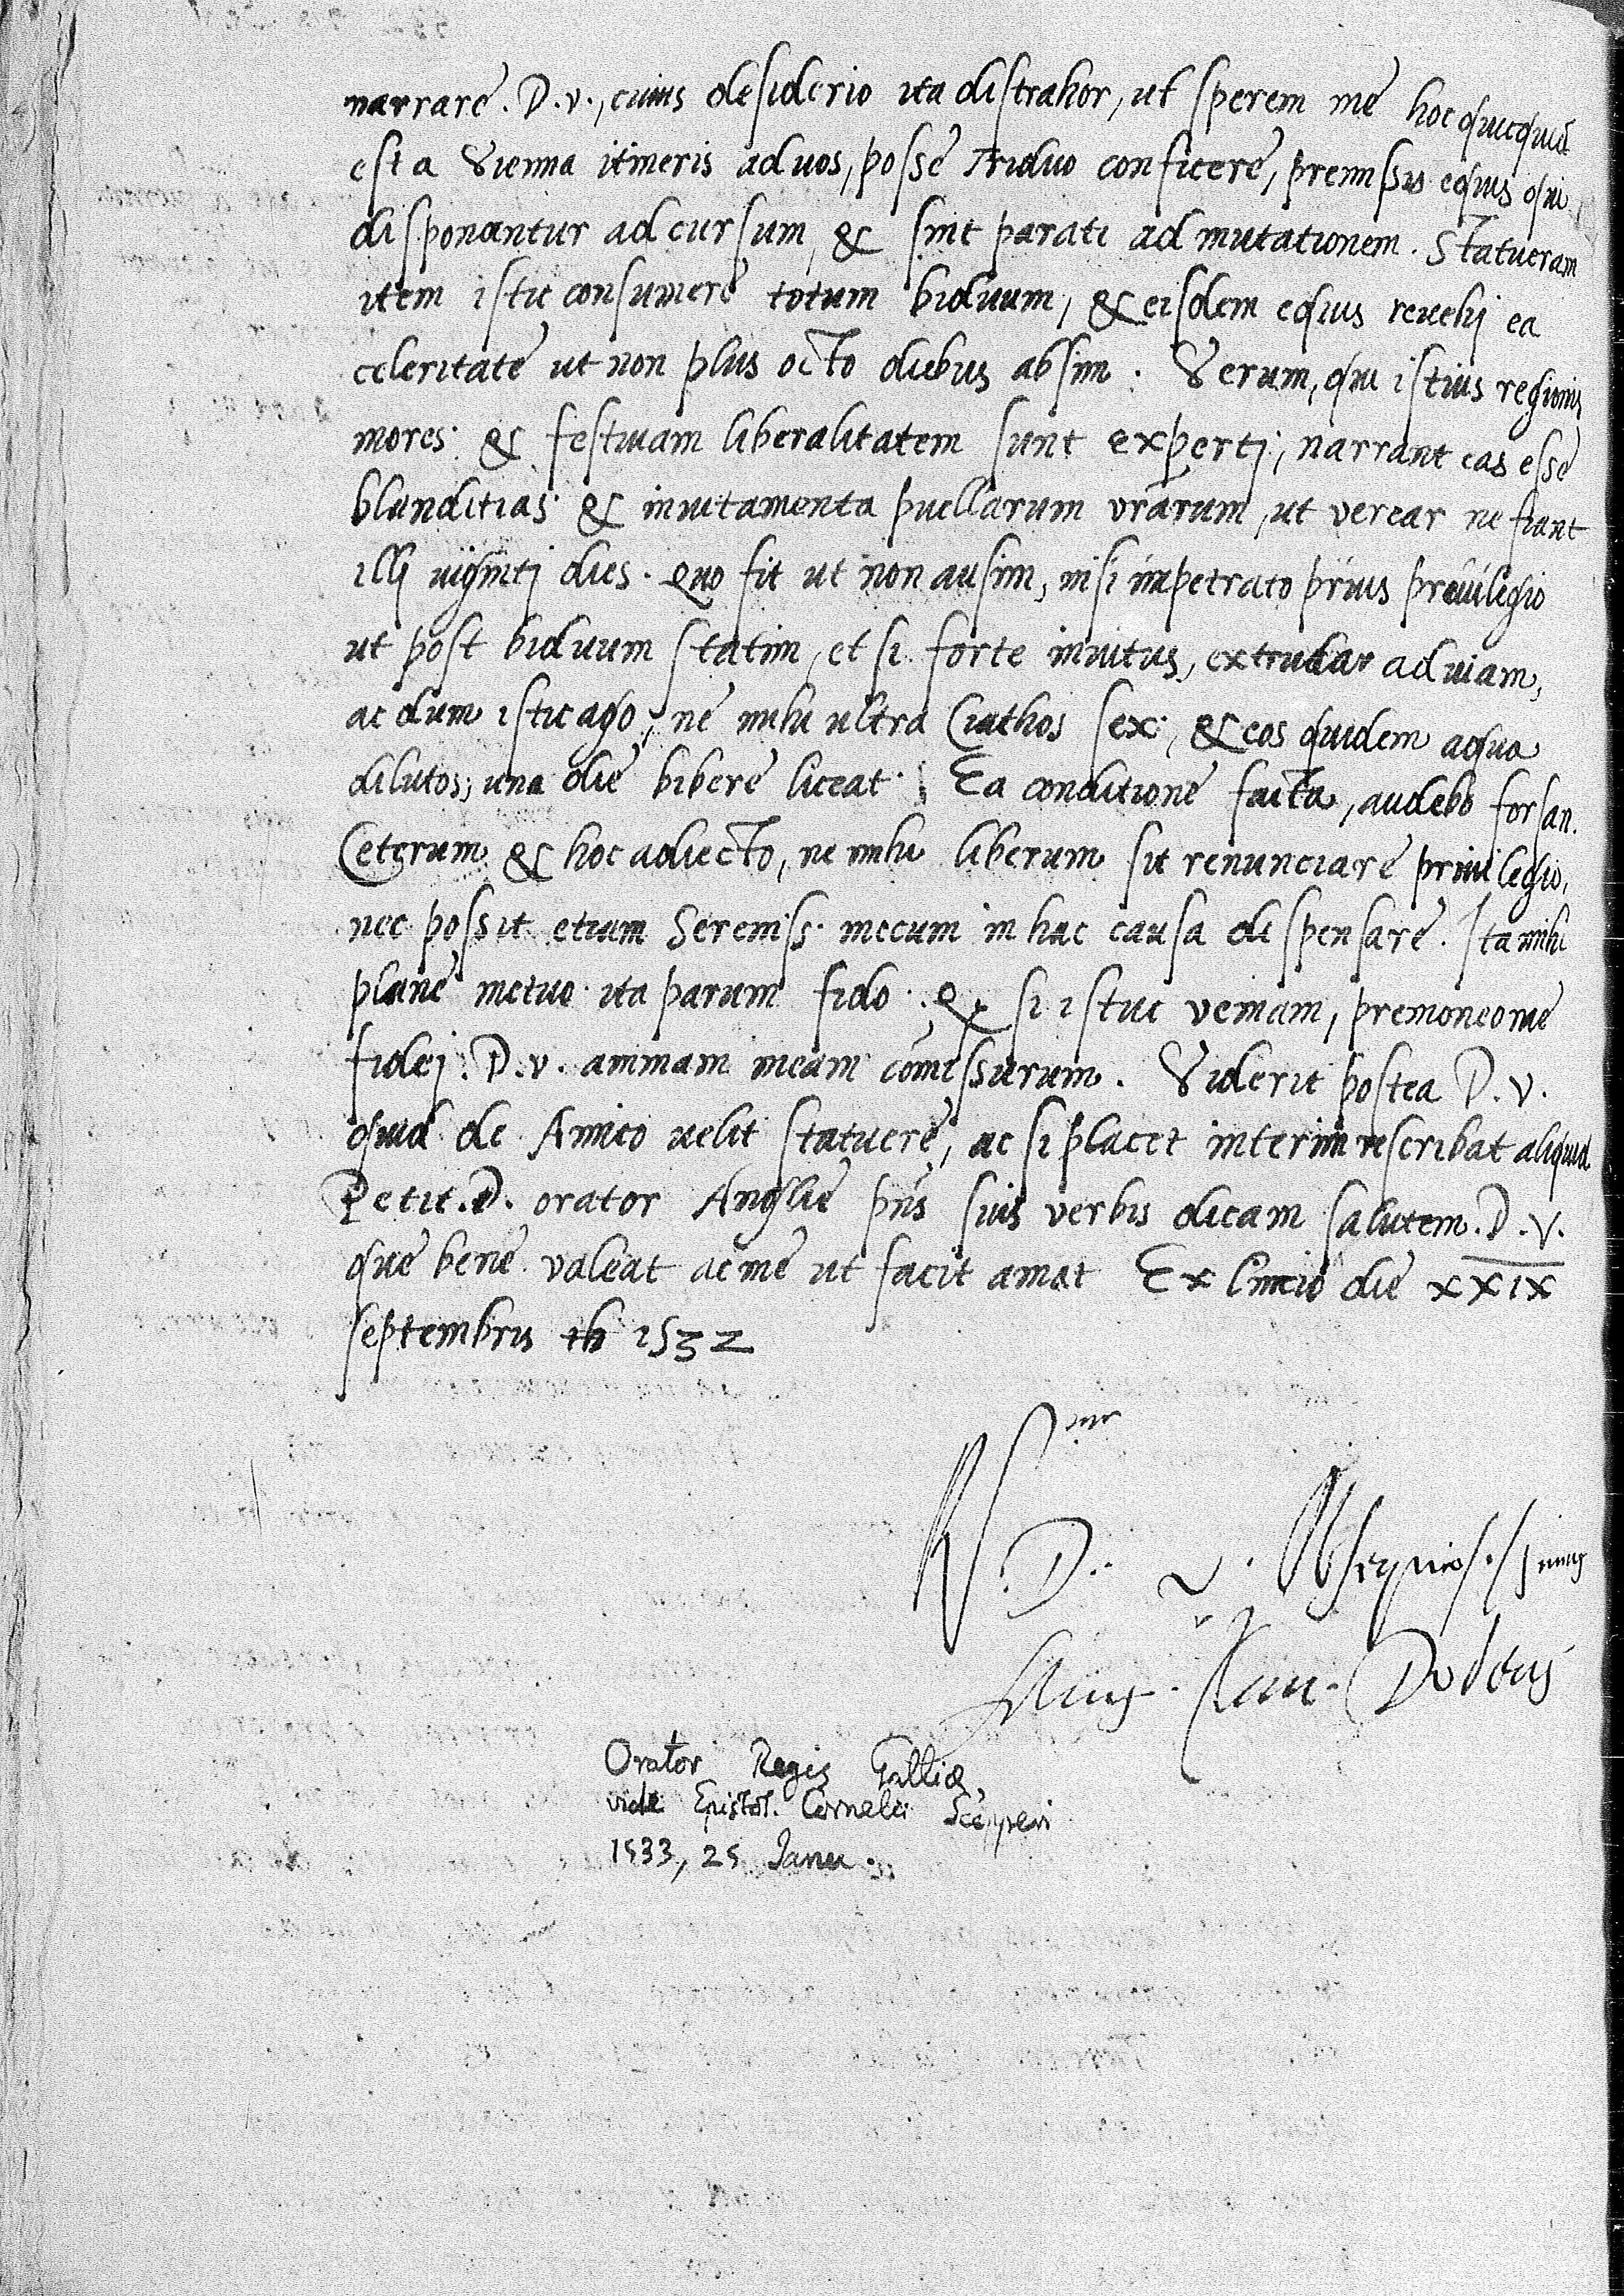 narrare. D. v., cuius desiderio ita distrahor, ut sperem me hoc quicquid
est a Vienna itineris ad uos, posse Triduo conficere, premissis equis qui
disponantur ad cursum, & sint parati ad mutationem. Statueram
item istic consumere totum biduum, & eisdem equis reuehj ea
celeritate ut non plus octo diebus absim. Verum, qui istius regionis
mores & festiuam liberalitatem sunt expertj, narrant eas esse
blanditias & inuitamenta puellarum vrarum, ut verear ne fiant
illj uigintj dies. Quo fit ut non ausim, nisi impetrato prius priuilegio
ut post biduum statim, et si forte inuitus, extrudar ad uiam,
ac dum istic ago, ne mihi ultra Ciathos sex, & eos quidem aqua
dilutos, una die bibere liceat. Ea conditione facta, audebo forsan.
Ceterum & hoc adiecto, ne mihi liberum sit renunciare priuilegio,
nec possit etiam Sereniss. mecum in hac causa dispensare. Ita mihi
plane metuo ita parum fido. & si istuc veniam, premoneo me
fidej. D. v. animam meam comissurum. Viderit postea D. v.
quid de Amico uelit statuere, ac si placet interim rescribat aliquid
Petit. D. orator Anglie pns suis verbis dicam salutem. D. V.
que bene valeat ac me ut facit amat Ex Lincio die XXIX
septembris 1532
R. D. v.
Orator Regis Galliæ,
vide Epistol. Cornelii Scepperi
1533, 25 Janu.